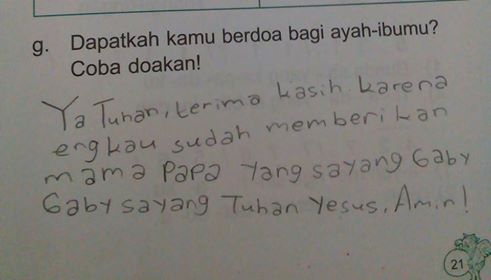 g. Dapatkah kamu berdoa bagi ayah-ibumu?
Coba doakan!
Ya Tuhan, terima kasih karena
engkau sudah memberikan
mama Papa Yang sayang Gaby
Gaby sayang Tuhan Yesus. Amin!
21